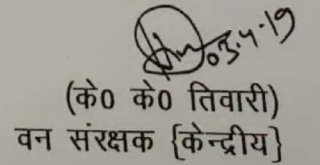 03.4.19
(के0 के0 तिवारी)
वन संरक्षक {केन्द्रीय}